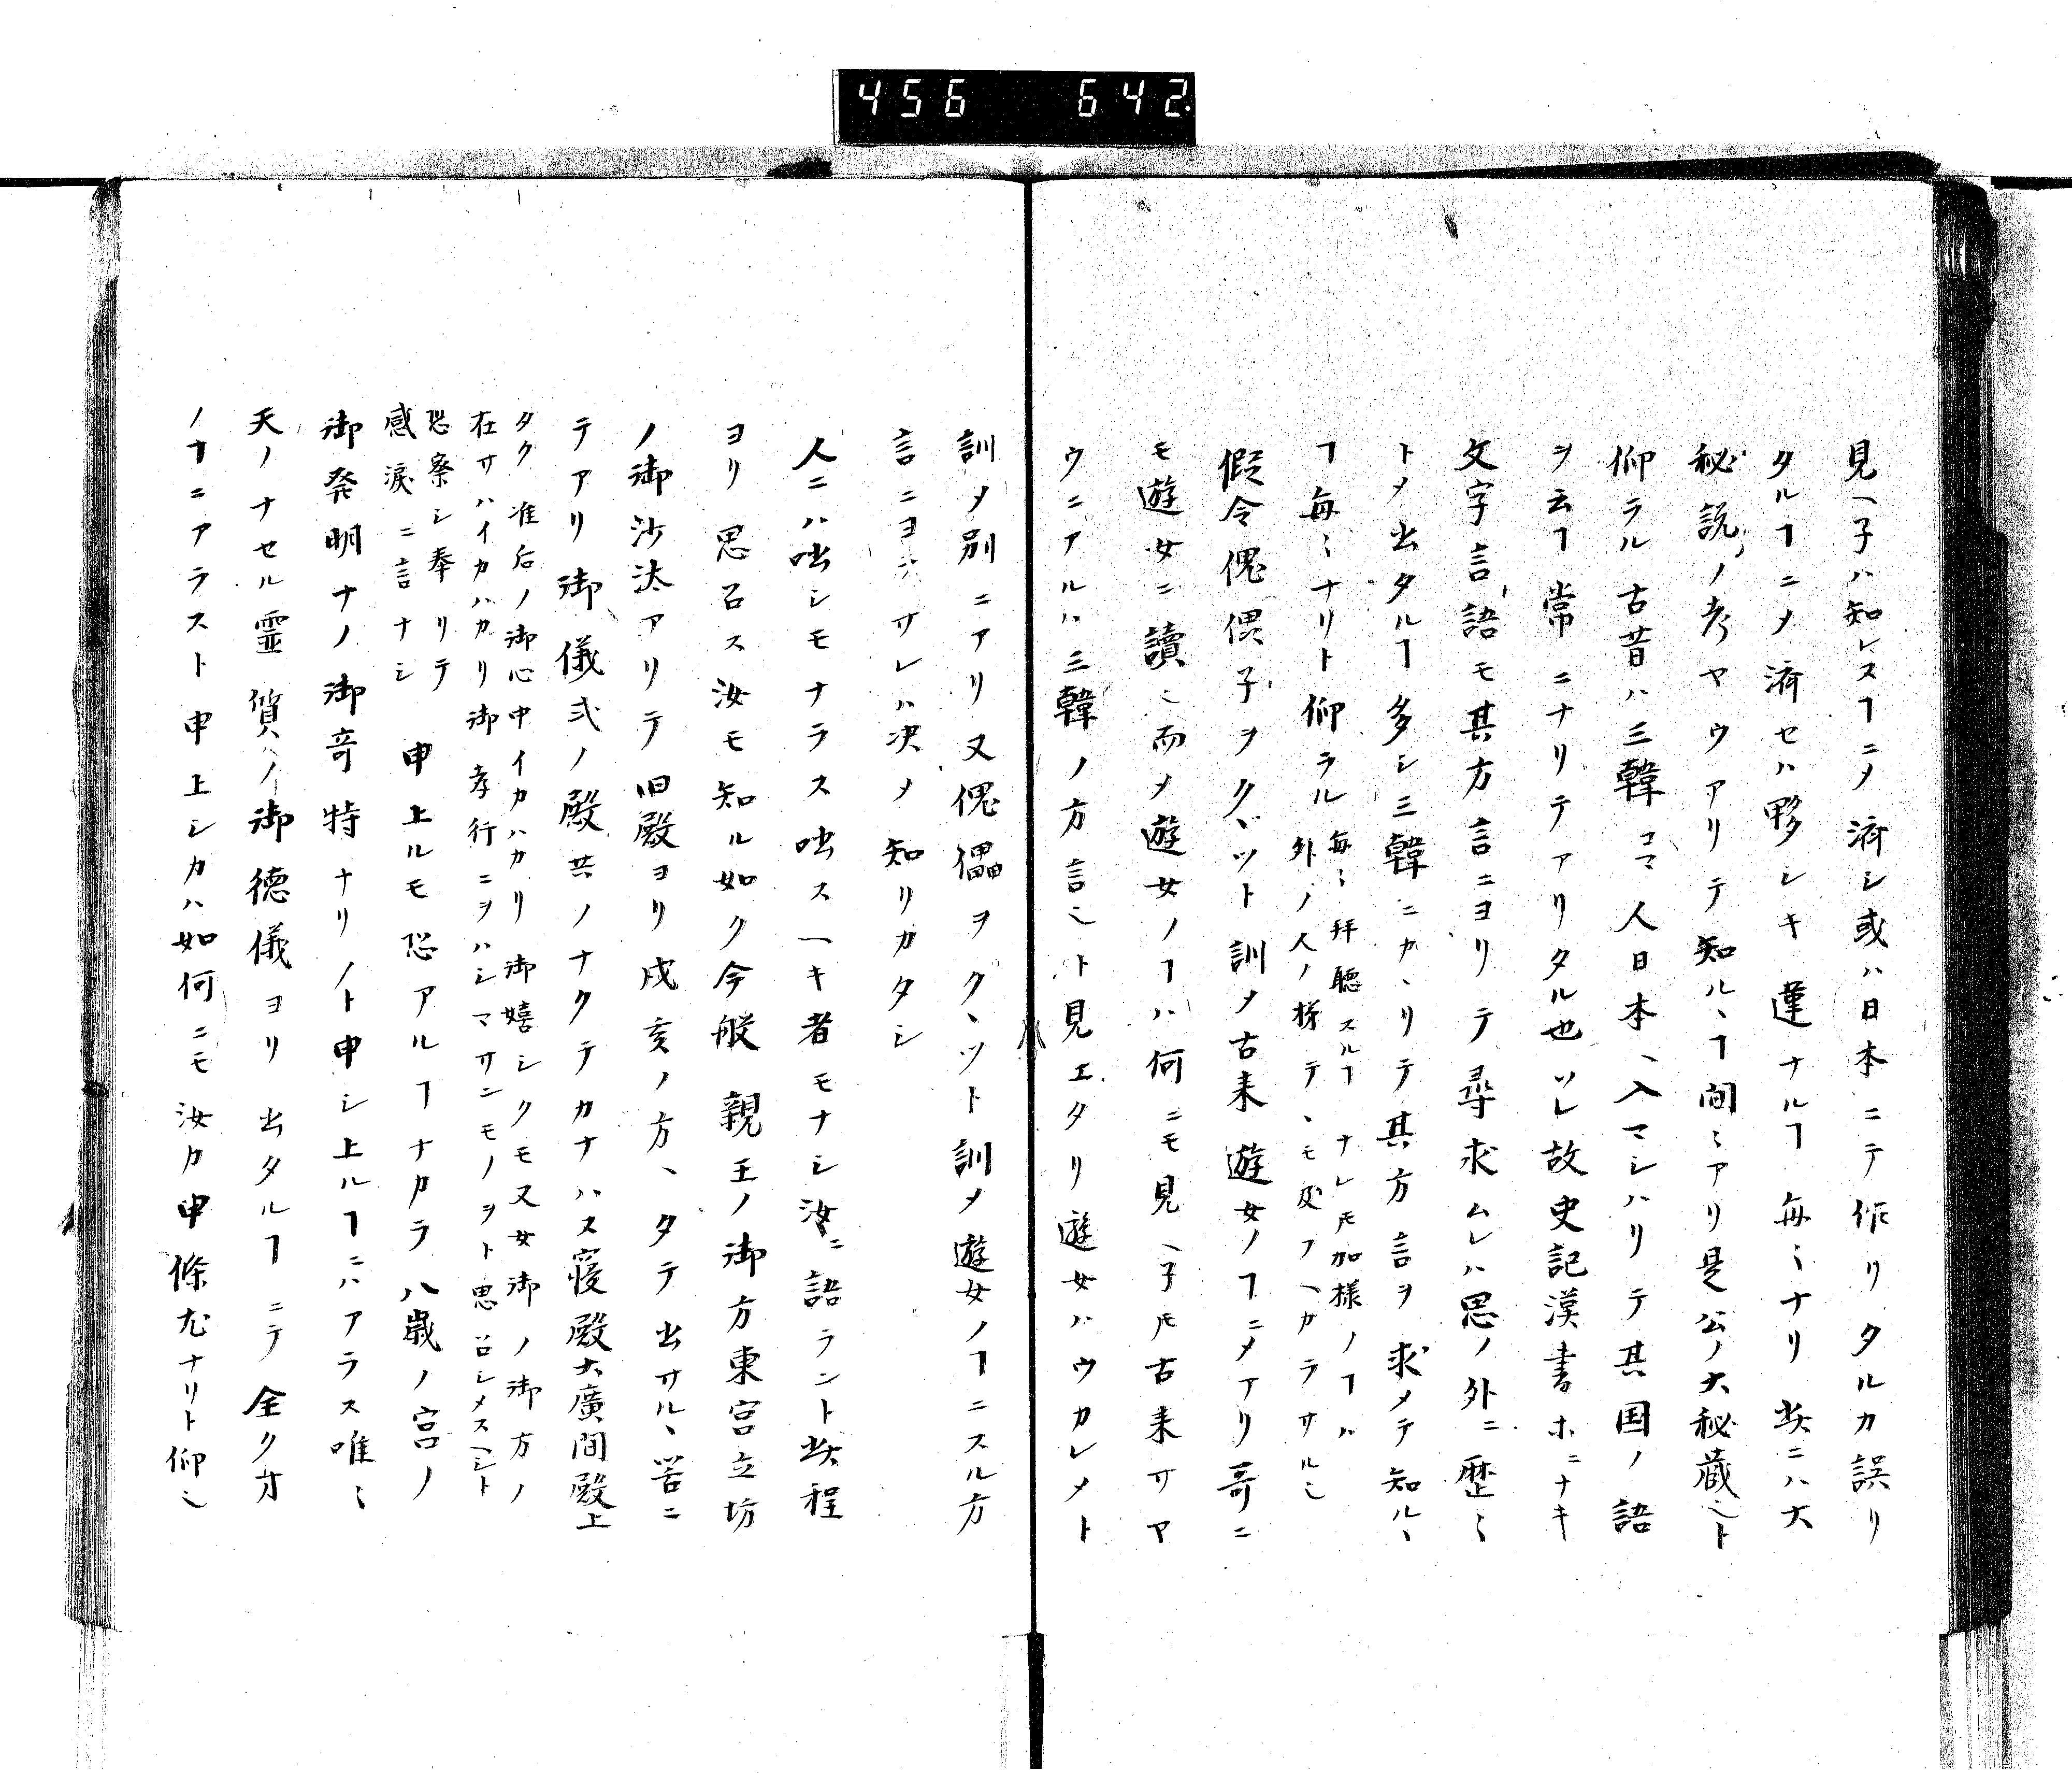 456 642
見ヘ子ハ知レスヿニメ済シ或ハ日本ニテ作リタルカ誤リ
タルヿニメ済セハ夥シキ違ナルヿ毎〻ナリ此ニハ大
秘説ノ考ヤウアリテ知ルヽヿ間〻アリ是公ノ大秘蔵〻ト
仰ラル古昔ハ三韓コマ人日本ヘ入マシハリテ其国ノ語
ヲ云ヿ常ニナリテアリタル也ソレ故史記漢書ホニナキ
文字言語モ其方言ニヨリテ尋求ムレハ思ノ外ニ歴〻
トメ出タルヿ多シ三韓ニカヽリテ其方言ヲ求メテ知ルヽ
ヿ毎〻ナリト仰ラル
毎〻拝聴スルヿナレ𪜈加様ノヿハ
外ノ人ノ
假令傀儡子ヲクヾツト訓メ古来遊女ノヿニメアリ哥ニ
モ遊女ニ讀〻而メ遊女ノヿハ何ニモ見ヘ子𪜈古来サア
ウニアルハ三韓ノ方言〻ト見エタリ遊女ハウカレメト
訓メ別ニアリ又傀儡ヲクヽツト訓メ遊女ノヿニスル方
言ニヨラサレハ决メ知リカタシ
人ニハ咄シモナラス咄スヘキ者モナシ汝ニ語ラント此程
ヨリ思召ス汝モ知ル如ク今般親王ノ御方東宮立坊
ノ御沙汰アリテ旧殿ヨリ戌亥ノ方ヘタテ出サルヽ筈ニ
テアリ御儀式ノ殿共ノナクテカナハヌ寝殿大廣間殿上
タク准后ノ御心中イカハカリ御嬉シクモ又女御ノ御方ノ
在サハイカハカリ御孝行ニヲハシマサンモノヲト思ソロシメスヘシト
恐察シ奉リテ
感涙ニ言ナシ
申上ルモ恐アルヿナカラ八歳ノ宮ノ
御発明ナノ御奇特ナリノト申シ上ルヿニハアラス唯〻
天ノナセル霊質ノ御徳儀ヨリ出タルヿニテ全ク才
ノヿニアラスト申上シカハ如何ニモ汝カ申條尤ナリト仰〻